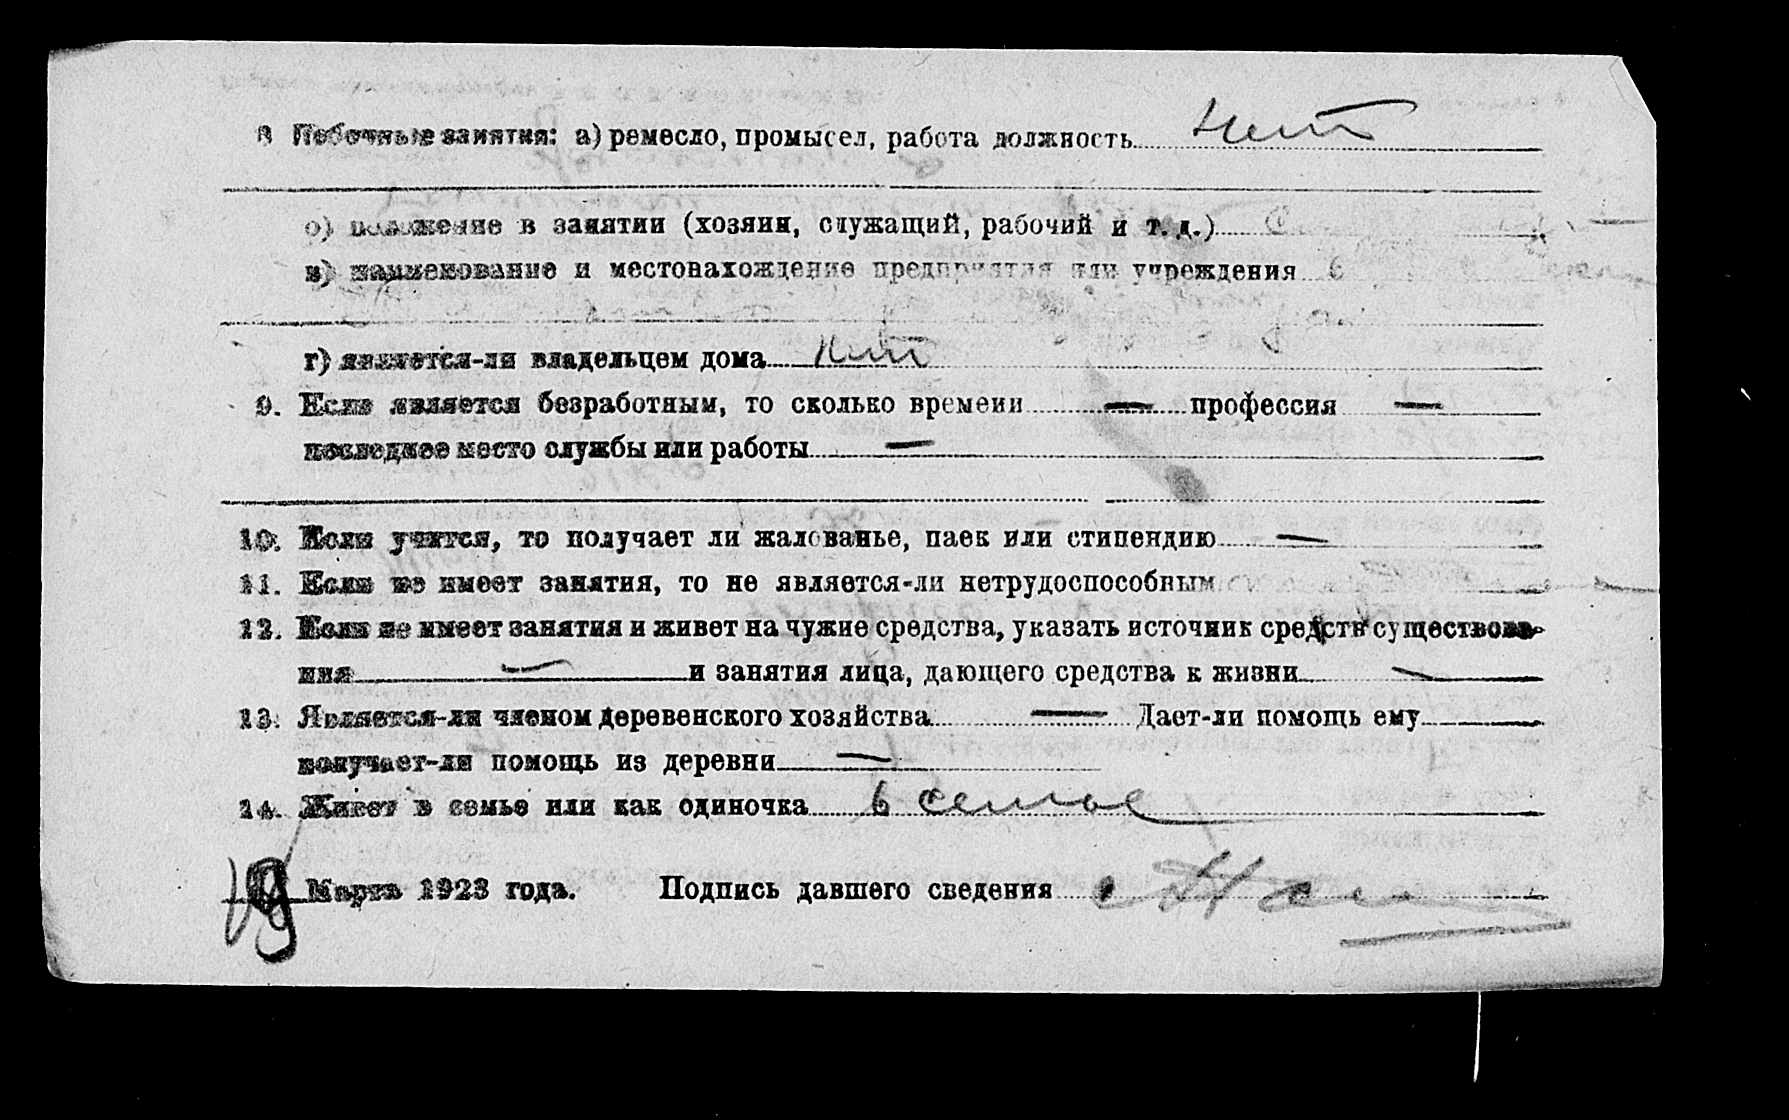 8 Побочные занятия: а) ремесло, промысел, работа должность нет
б) положение в занятии (хозяин, служащий, рабочий и т. д.)
в) наименование и местонахождение предприятия или учреждения
г) является-ли владельцем дома нет
9. Если является безработным, то сколько времени — профессия —
последнее место службы или работы —
10. Если учится, то получает ли жалованье, паек или стипендию —
11. Если не имеет занятия, то не является-ли нетрудоспособным
12. Если не имеет занятия и живет на чужие средства, указать источник средств существова-
ния — и занятия лица, дающего средства к жизни —
13. Является-ли членом деревенского хозяйства — Дает-ли помощь ему
получает-ли помощь из деревни —
14. Живет в семье или как одиночка в семье
19 Марта 1923 года. Подпись давшего сведения